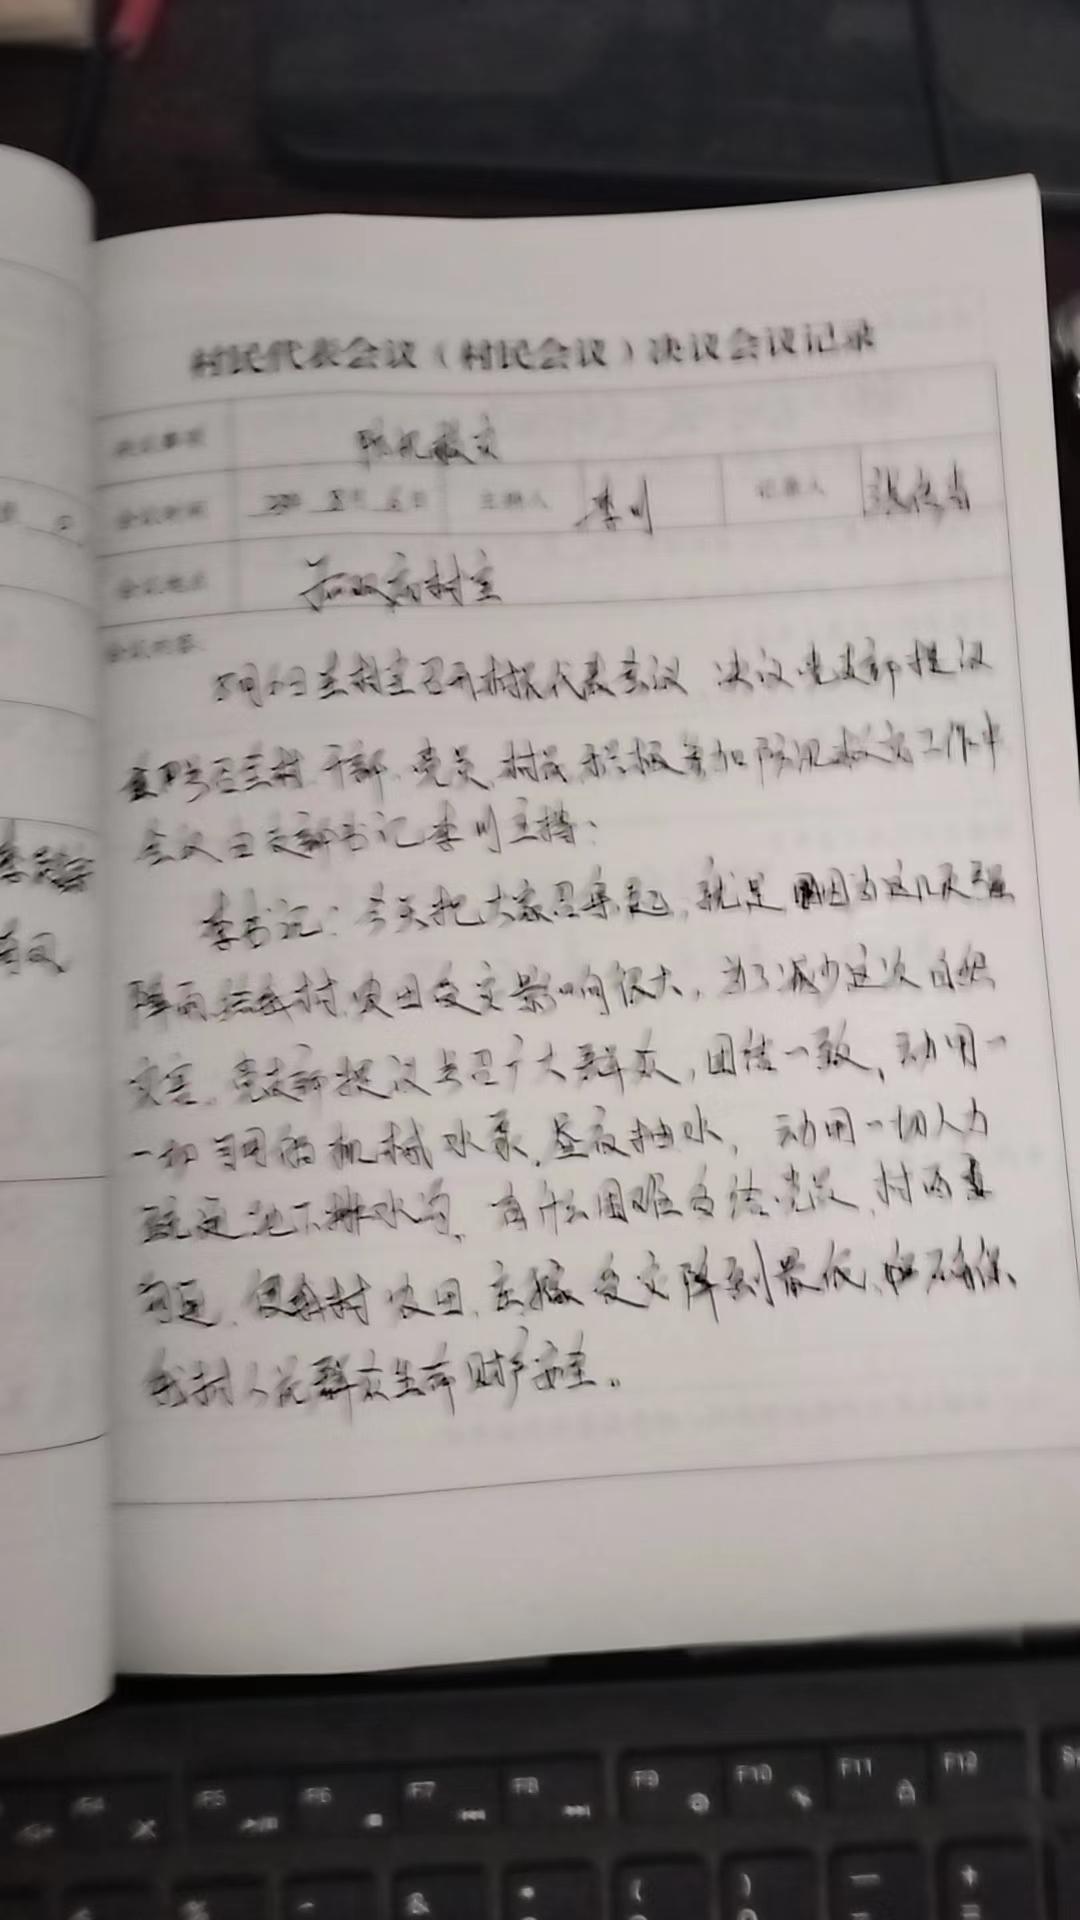 村民代表会议（村民会议）决议会议记录
决议事项 防汛救灾
会议时间 年 8月 6日 主持人 李川 记录人
会议地点 村室
会议内容:
8月6日在村室召开村民代表会议 决议党支部提议
号召全村干部、党员、村民积极参加防汛救灾工作中
会议由支部书记李川主持：
李书记：今天把大家召集起，就是因为这几天强
降雨，给我村农田受灾影响很大，为了减少这次自然
灾害，党支部提议号召广大群众，团结一致，动用一
一切可用的机械水泵，昼夜抽水，动用一切人力
疏通地下排水沟，有什么困难多给党员、村两委
沟通，使我村农田、庄稼受灾降到最低，确保
我村人民群众生命财产安全。
F4 F5 F6 F7 F8 F9 F10 F11 F12